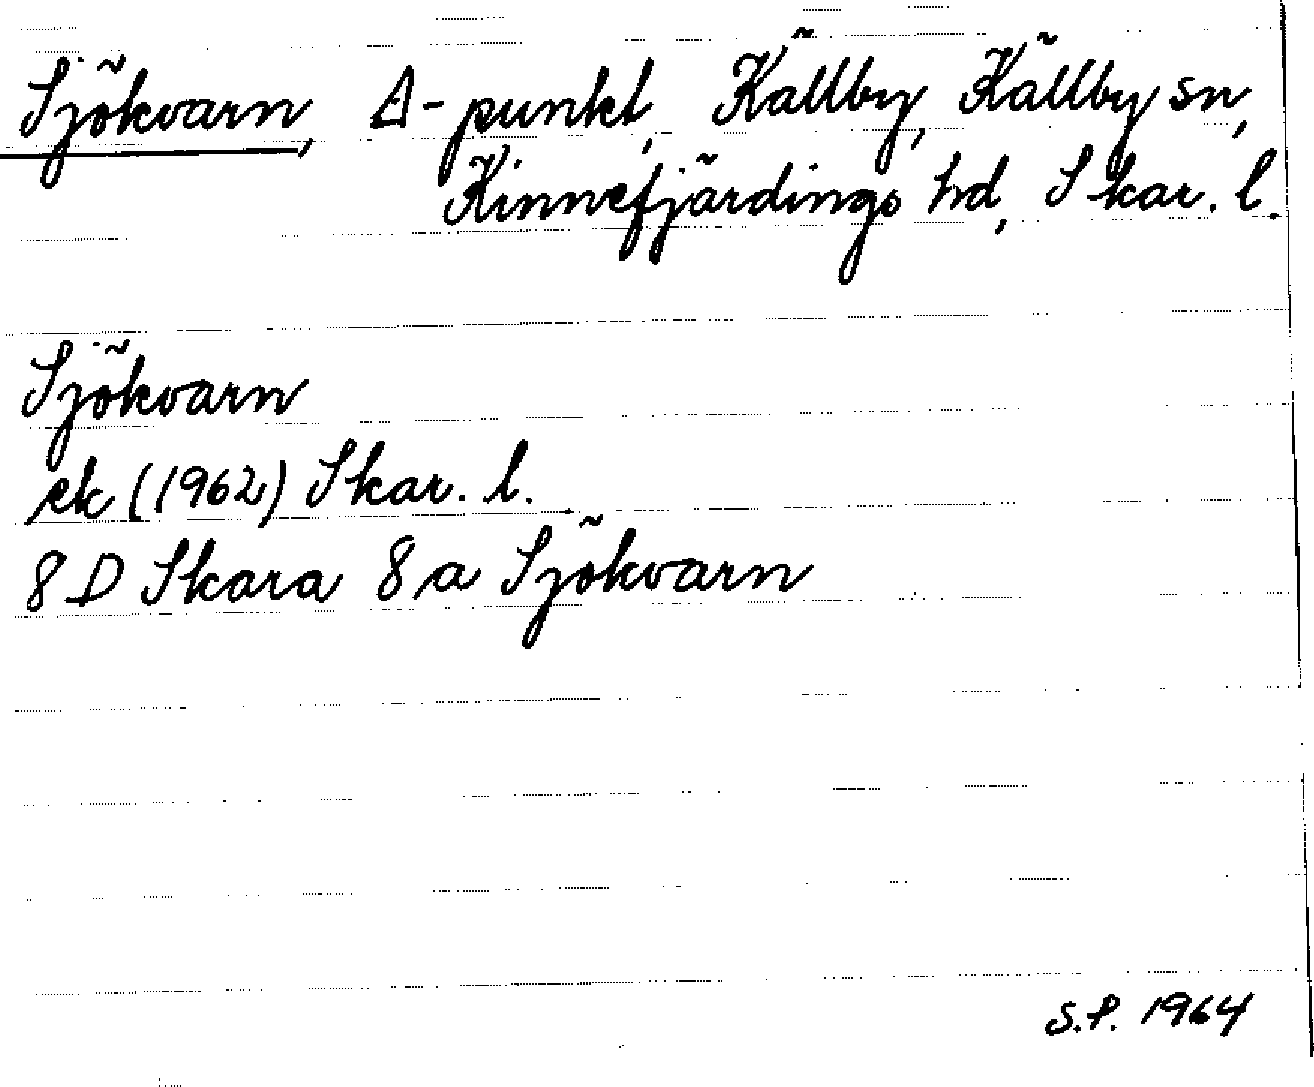 Sjökvarn, Δ-punkt, Källby, Källby sn,
Kinnefjärdings hd, Skar. l.
Sjökvarn
ek (1962) Skar. l.
8 D Skara 8 a Sjökvarn
S.P. 1964